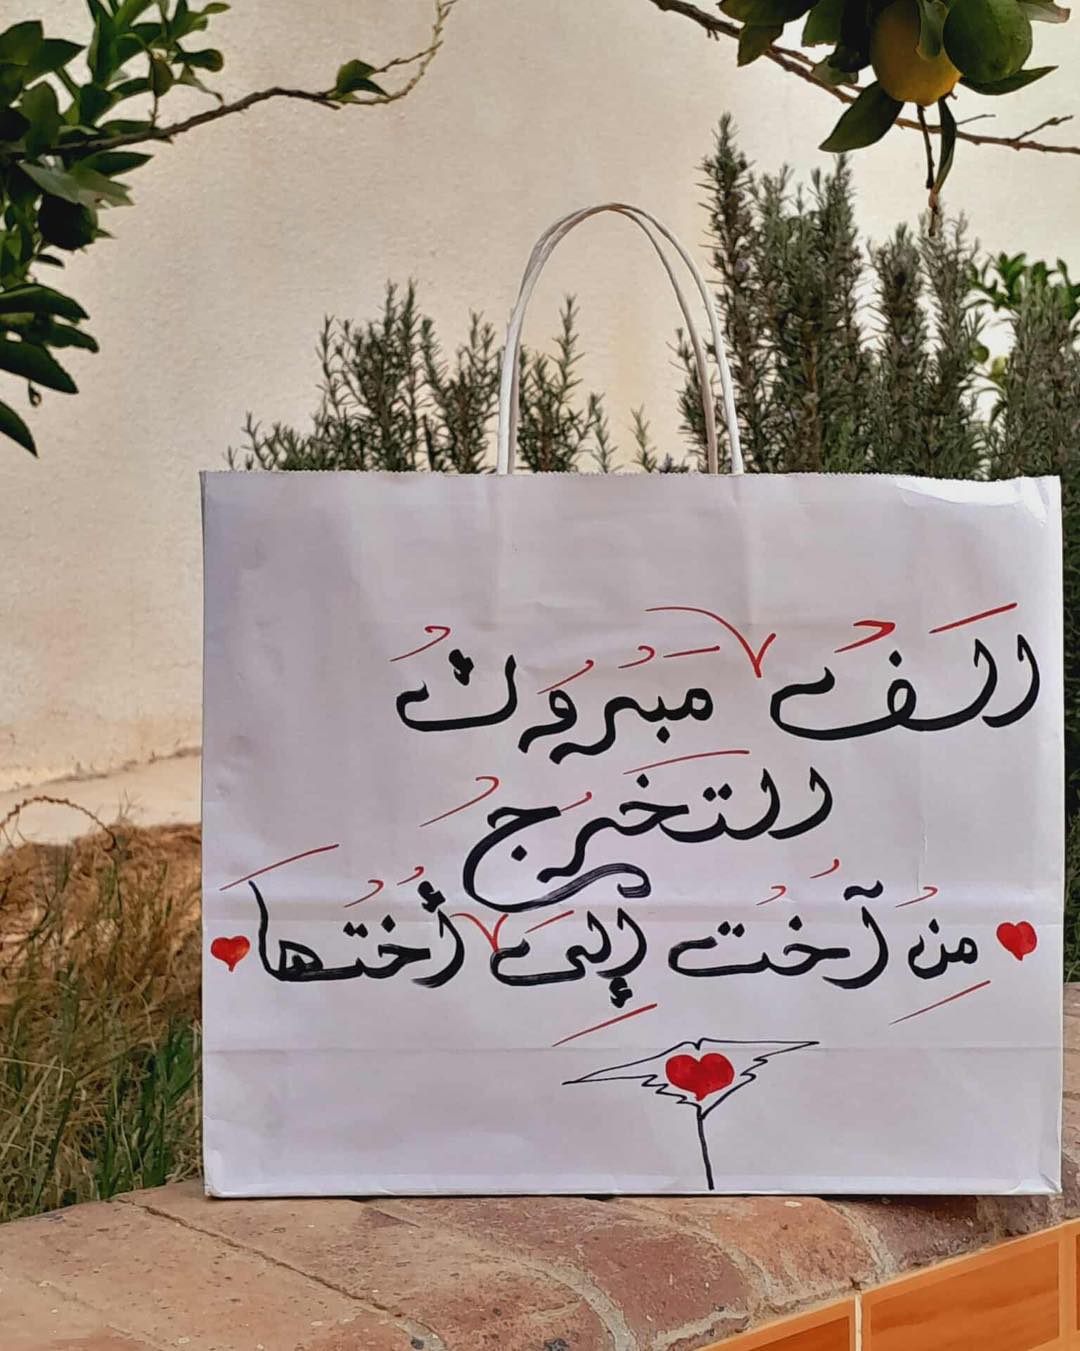 الف مبروك
التخرج
من آخت إلى أختها